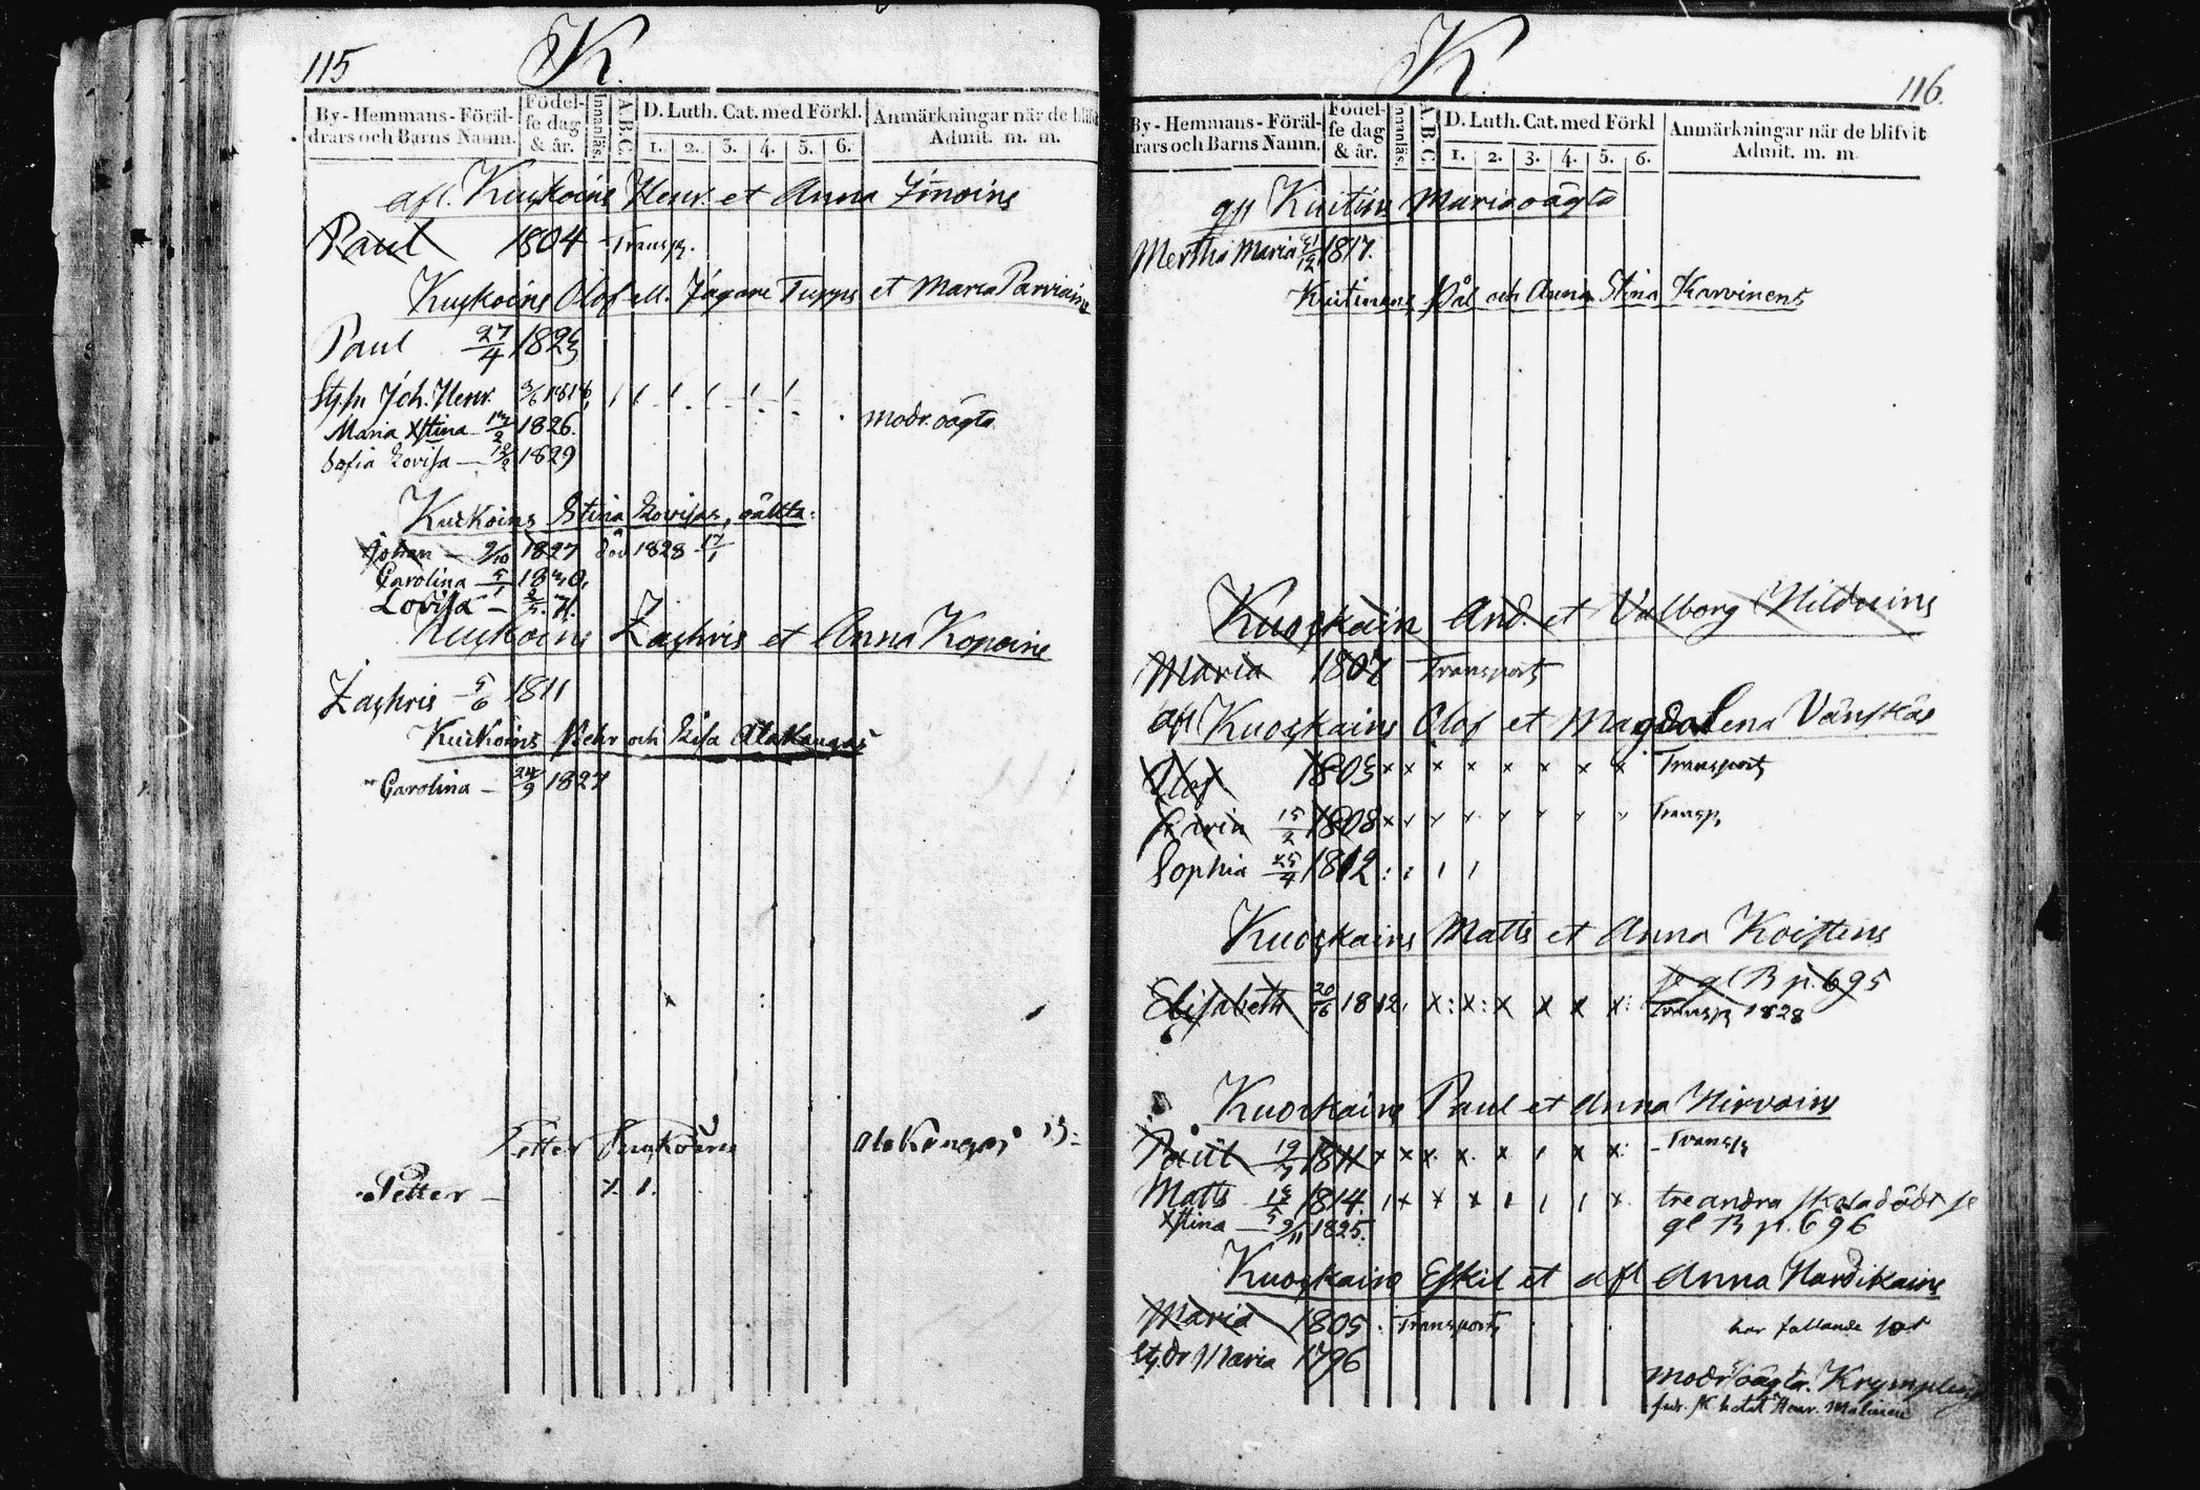 115
K.
By-Hemmans-Föräl-
drars och Barns Namn.
Födel-
se dag
& år.
Innanläs.
A.B.C.
D. Luth. Cat. med Förkl.
1. 2. 3. 4. 5. 6.
Anmärkningar när de blifv
Admit. m. m.
afl. Kuskoins Henr. et Anna
Paul 1804 - Transp.
Kuskoins Olof ell. Jägare Turpus et Maria Parviains
Paul 27/4 1823
Stfsn Joh. Henr. 3/6 1818
Maria Xstina 2 1826. Modr. oägta
Sofia Lovisa — 1829
Kuckoins Stina Lovisas, oäkta:
Johan — 9/10 1827 död 1828 17/1
Carolina — 1830,
Lovisa —
Kuskoins Zachris et Anna Kopoins
Zachris 5/6 1811
Kuckoins Pehr och Lisa Alakangas
Carolina — 24/9 1827
Petter Kuskoins Alakangas
Petter —
K.
116.
By-Hemmans-Föräl-
drars och Barns Namn.
Födel-
se dag
& år.
Innanläs.
A.B.C
D. Luth. Cat. med Förkl
1. 2. 3. 4. 5. 6.
Anmärkningar när de blifvit
Admit. m. m
Kuitins Maria oägta
Mertha Maria 21/12 1817.
Kuitinens Pål och Anna Stina Karvinens
Kuoskain And. et Valborg Hildveins
Maria 1807 Transport
afl Kuoskains Olof et Magdalena Vänskäs
Olof 1803 x x x x x x x x Transport
Karin 15/2 1808 Transp,
Sophia 25/4 1812
Kuoskains Matts et Anna Koistens
se gl B p. 695
Elisabeth 1812. x : x : x x x x : Transp 1828
Kuoskains Paul et Anna Hirvoins
Paul 1811 x x x x x x x - Transp
Matts 1814. tre andra skola dödt se
Xstina — 9/11 1825. gl B p. 696
Kuoskains Eskil et afl Anna Hardikains
Maria 1805 . Transport, har fallande sot
Sty.dr Maria 1796
Modr oägta. Krympling
Henr. Malinen